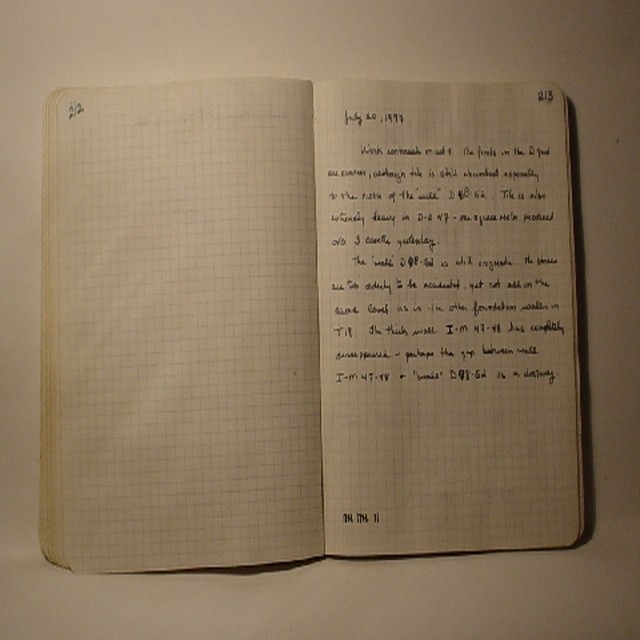 212
213
July 20, 1997
Work continues on unit 4. The finds in the D grid
are common, although tile is still abundant especially
to the north of the "wall" D48-52. Tile is also
extremely heavy in D-E 47 - one square meter produced
3 yesterday.
The "wall" D48-52 is still enigmatic. The stones
are too orderly to be accidental, yet not all on the
same level as in the other foundation walls in
T18. The thick wall I-M 47-48 has completely
disappeared - perhaps the gap between wall
I-M 47-48 + "wall" D48-52 is a doorway.